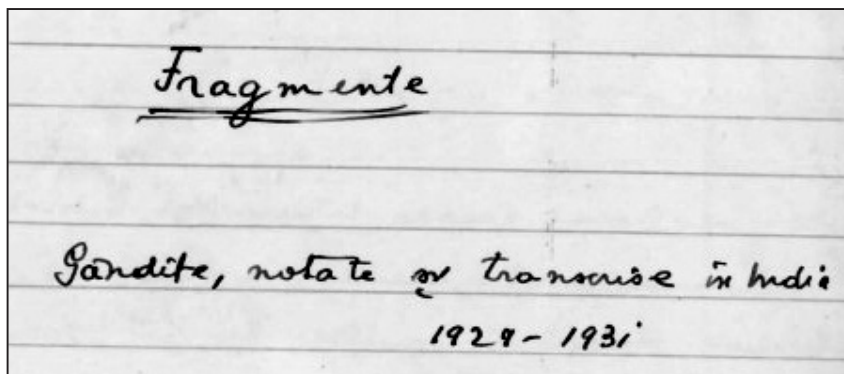 Fragmente
Gândite, notate și transcrise în India
1929-1931